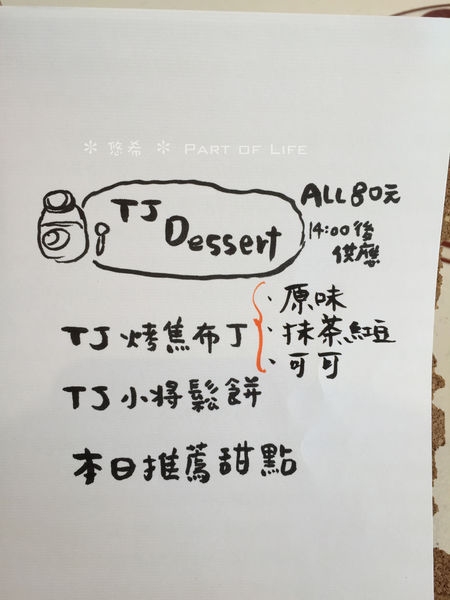 ✲ 悠希 ✲ PART OF LIFE
TJ Dessert
ALL 80元
14:00後
供應
TJ 烤焦布丁
· 原味
· 抹茶紅豆
· 可可
TJ 小將鬆餅
本日推薦甜點